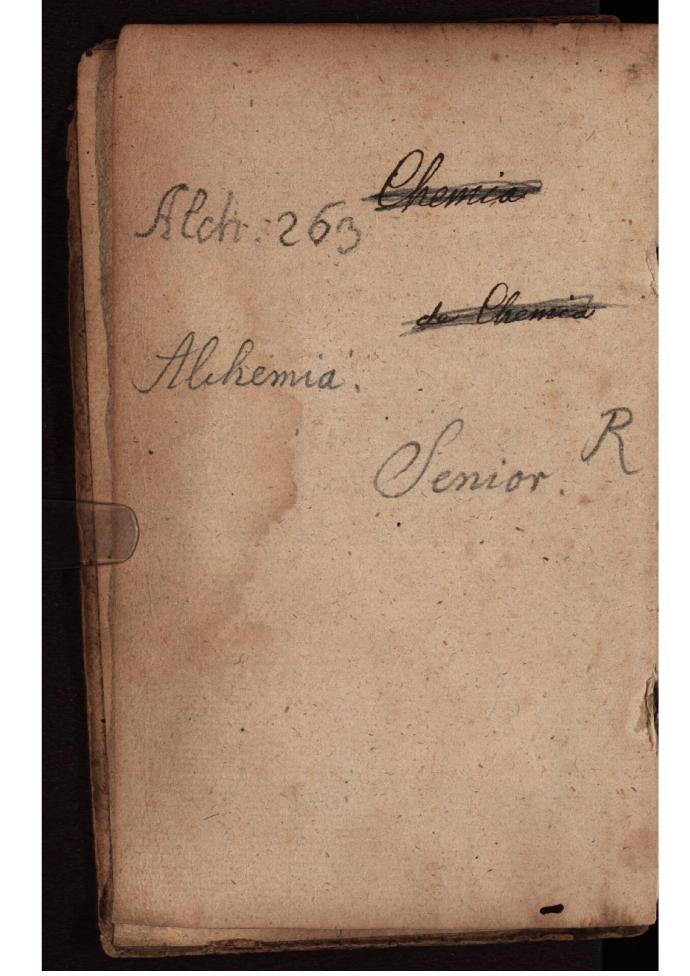 Chemia
Alch: 263
de Chemia
Alchemia.
R
Senior.